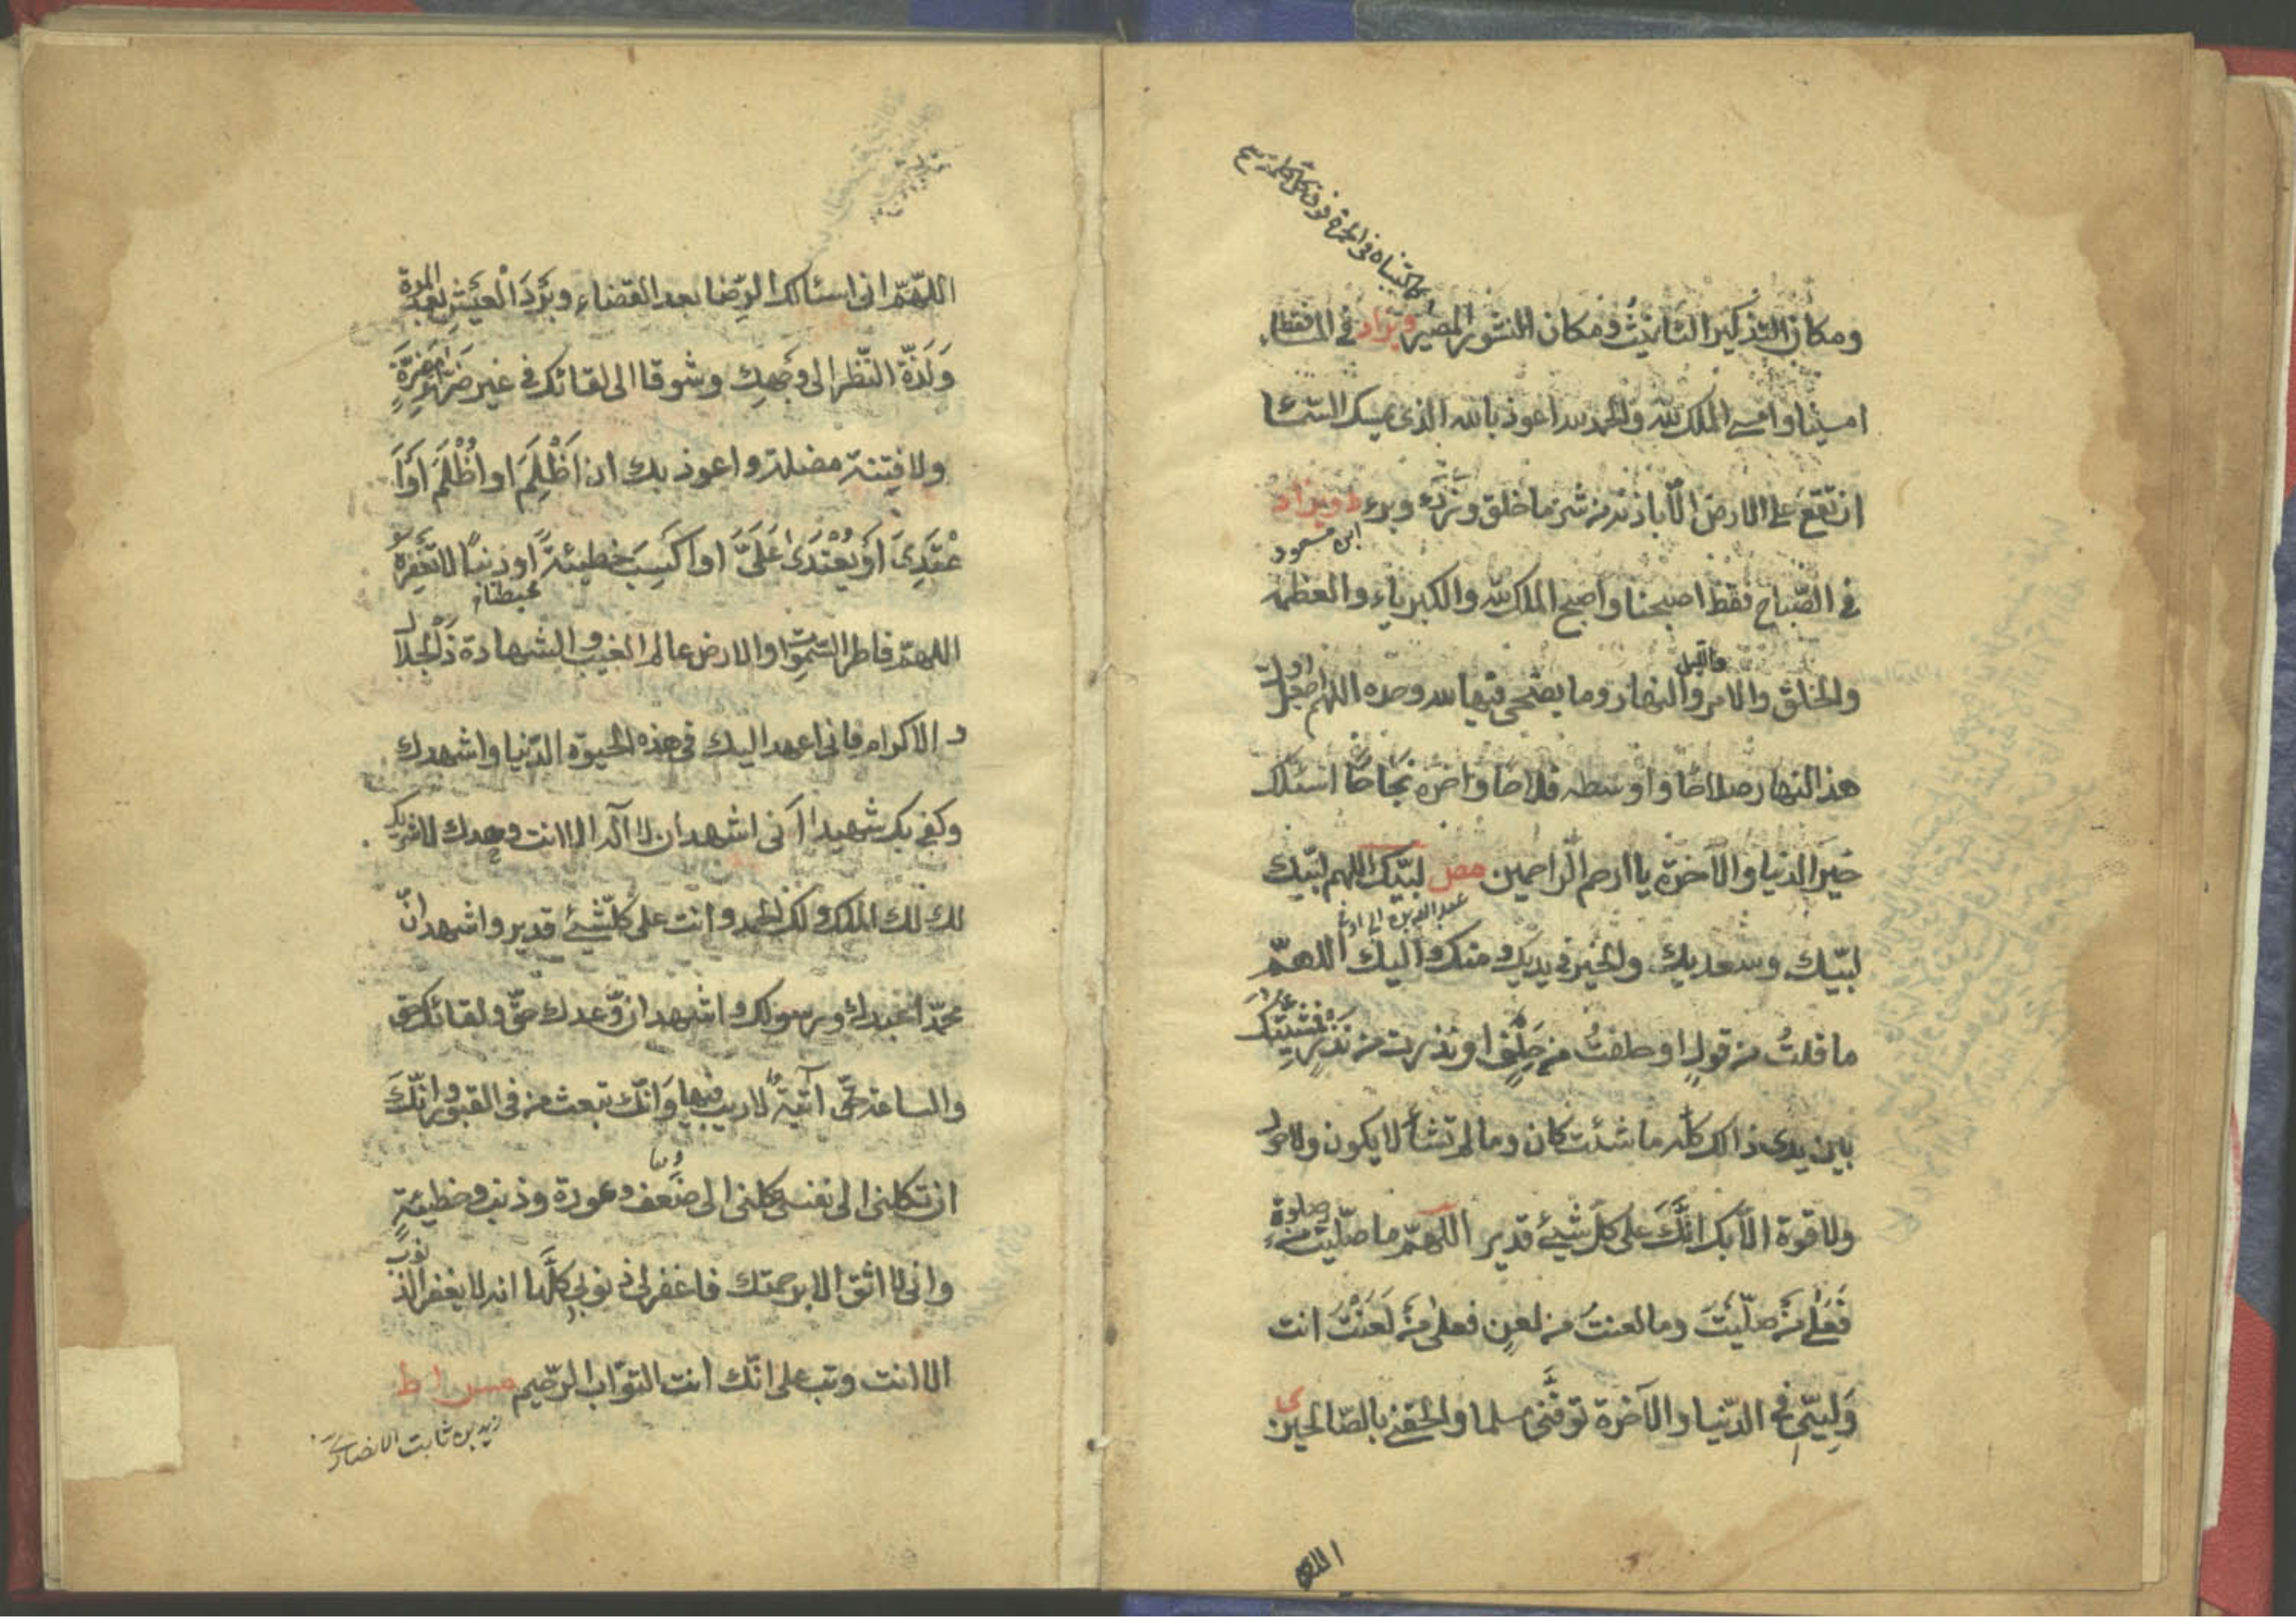 كما كتبناه في الحمرة فوق كل كلمة
ومكان التذكير التانيث ومكان النشور المصير ويزاد في المساء فقط
امسينا وامسى الملك لله والحمد لله اعوذ بالله الذي يمسك السماء
ان تقع على الارض الا باذنه من شر ما خلق وذرء وبرء ط ويزاد
ابن مسعود
في الصّباح فقط اصبحنا واصبح الملك لله والكبرياء والعظمة
والخلق والامر والليل والنهار وما يضحى فيها لله وحده اللهم اجعل اول
هذا النهار صلاحا واوسطه فلاحا واخره نجاحا اسئلك
خير الدنيا والآخرة يا ارحم الراحمين مص لبّيك اللهم لبّيك
عبد الله بن ابي اوفى
لبّيك وسعديك والخير في يديك ومنك واليك اللهمّ
ما قلتُ من قولٍ او حلفتُ من حَلِفٍ او نذرت من نذرٍ فمشيّتك
بين يدى ذالك كله ما شئت كان وما لم تشأ لا يكون ولا حول
ولا قوة الّا بك انّك على كل شيئ قدير اللهمّ ما صلّيت من صلوة
فَعَلٰى مَنْ صلّيْتَ وما لعنتُ من لعنٍ فعلى مَنْ لَعَنْتَ انت
وَلِيّي في الدّنيا والآخرة توفّني مسلما والحقني بالصّالحين ى
اللهم
اللّهمّ اني اسئالك الرّضا بعد القضاء وبَرْدَ الْعَيْشِ بعد الموت
وَلَذّةَ النّظر الى وجهك وشوقا الى لقائك في غير ضرّاء مضرّةٍ
ولا فِتنة مضلة واعوذ بك ان اَظْلِمَ او اُظْلَمَ او اَ
عْتَدِىَ اَوْ يُعْتَدٰى عَلَىَّ او اكسِبَ خطيئةً او ذنبًا لا تغفره
محبطة
اللهمّ فاطر السّموات والارض عالم الغيب والشهادة ذا الجلال
و الاكرام فاني اعهد اليك في هذه الحيوة الدّنيا واشهدك
وكفى بك شهيدا اَنّي اشهد ان لا اله الا انت وحدك لا شريك
لك لك الملك ولك الحمد وانت على كلّ شيئ قدير واشهد انّ
محمّدا عبدك ورسولك واشهد ان وعدك حقّ ولقائك حق
والساعة حقّ آتية لا ريب فيها وَانّك تبعث من في القبور وانّكَ
ان تكلني الى نفسي تكلني الى ضَعف وعورة وذنب وخطيئةٍ
واني لا اثق الا برحمتك فاغفر لي ذنوبي كلَّها انه لا يغفر الذنوب
الا انت وتب علي انّك انت التوّاب الرّحيم مس ا ط
زيد بن ثابت الانصاري